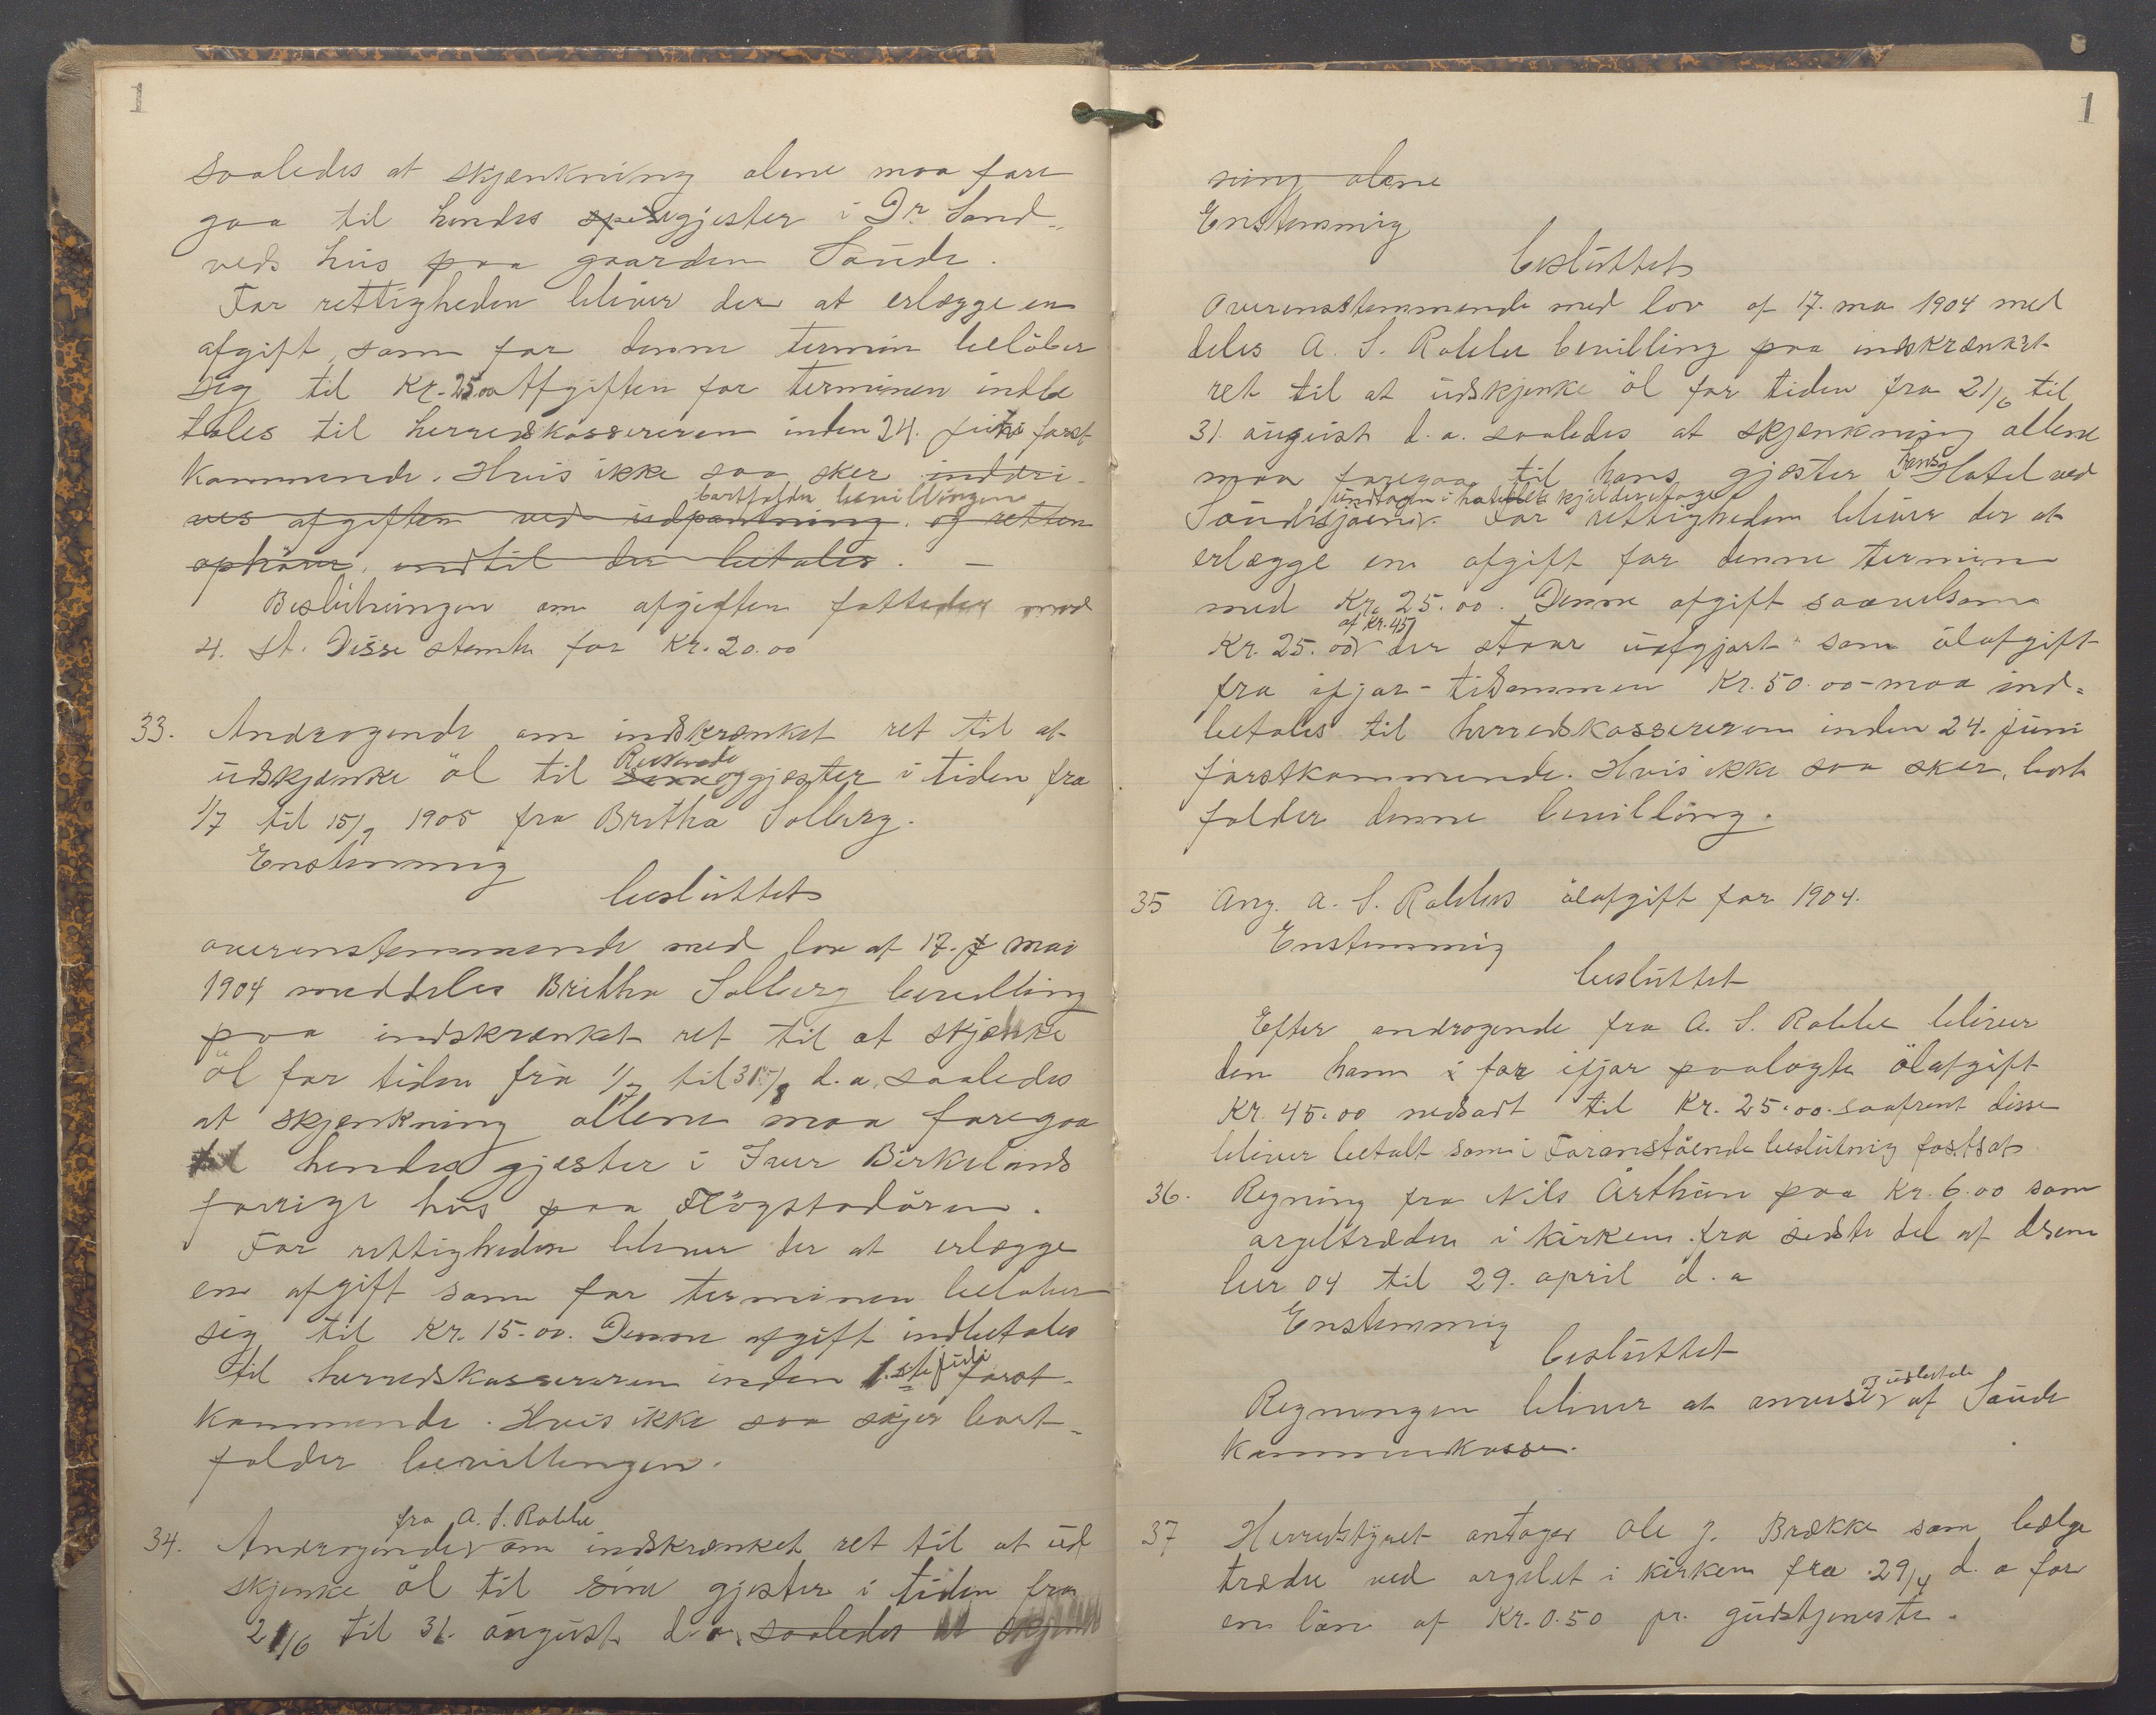 1
saaledes at skjænkning alene maa fore
gaa til hendes spisegjester i Dr. Sand-
veds hus paa gaarden Saude.
For rettigheden bliver der at erlægge en
afgift, som for denne termin belöber
sig til Kr. 25.00 Afgiften for terminen indbe
tales til herredskassereren inden 24. juni først
kommende. Hvis ikke saa sker inddri-
bortfalder bevillingen
ves afgiften ved udpantning og retten
ophörer indtil der betales. —
Beslutningen om afgiften fattedes mod
4. st. Disse stemte for Kr. 20.00
33. Andragende om indskrænket ret til at
Reisende
udskjænke öl til sine og gjester i tiden fra
1/7 til 15/9 1905 fra Britha Solberg.
Enstemmig
besluttet
overenstemmende med lov af 17. mai
1904 meddeles Britha Solberg bevilling
paa indskrænket ret til at skjænke
öl for tiden fra 1/7 til 31/8 d.a. saaledes
at skjænkning allene maa foregaa
til hendes gjester i Iver Birkelands
forrige hus paa Högstadören.
For rettigheden bliver der at erlægge
en afgift som for terminen belöber
sig til Kr. 15.00. Denne afgift indbetales
til herredskassereren inden 1.ste juli først-
kommende. Hvis ikke saa skjer bort-
falder bevillingen.
fra A. S. Rabbe
34. Andragende om indskrænket ret til at ud
skjenke öl til sine gjester i tiden fra
21/6 til 31. august d.a. saaledes at skjænk
1
ning alene
Enstemmig
besluttet
Overensstemmende med lov af 17. mai 1904 med
deles A. S. Rabbe bevilling paa indskrænket
ret til at udskjenke öl for tiden fra 21/6 til
31. august d.a. saaledes at skjænkning allene
maa foregaa til hans gjæster i hans Hotel ved
undtagen i hotellets kjelderetage
Saudesjøen. For rettigheden bliver der at
erlægge en afgift for denne termin
med Kr. 25.00. Denne afgift saavelsom
af Kr. 45
Kr. 25.00 der staar uafgjort som ölafgift
fra ifjor - tilsammen Kr. 50.00 - maa ind-
betales til herredskassereren inden 24. juni
førstkommende. Hvis ikke saa sker, bort
falder denne bevilling.
35 Ang. A. S. Rabbes ölafgift for 1904.
Enstemmig
besluttet
Efter andragende fra A. S. Rabbe bliver
den ham i for ifjor paalagte ölafgift
Kr. 45.00 nedsat til Kr. 25.00. saafremt disse
bliver betalt som i Foranstående beslutning fastsat
36. Regning fra Nils Århun paa Kr. 6.00 som
orgeltræder i kirken fra sidste del af desem
ber 04 til 29. april d.a
Enstemmig
besluttet
Regningen bliver at anvise og udbetale af Saude
Kommunekasse.
37 Herredstyret antager Ole J. Brække som bælge
træder ved orgelet i kirken fra 29/4 d.a for
en lön af Kr. 0.50 pr. gudstjeneste.